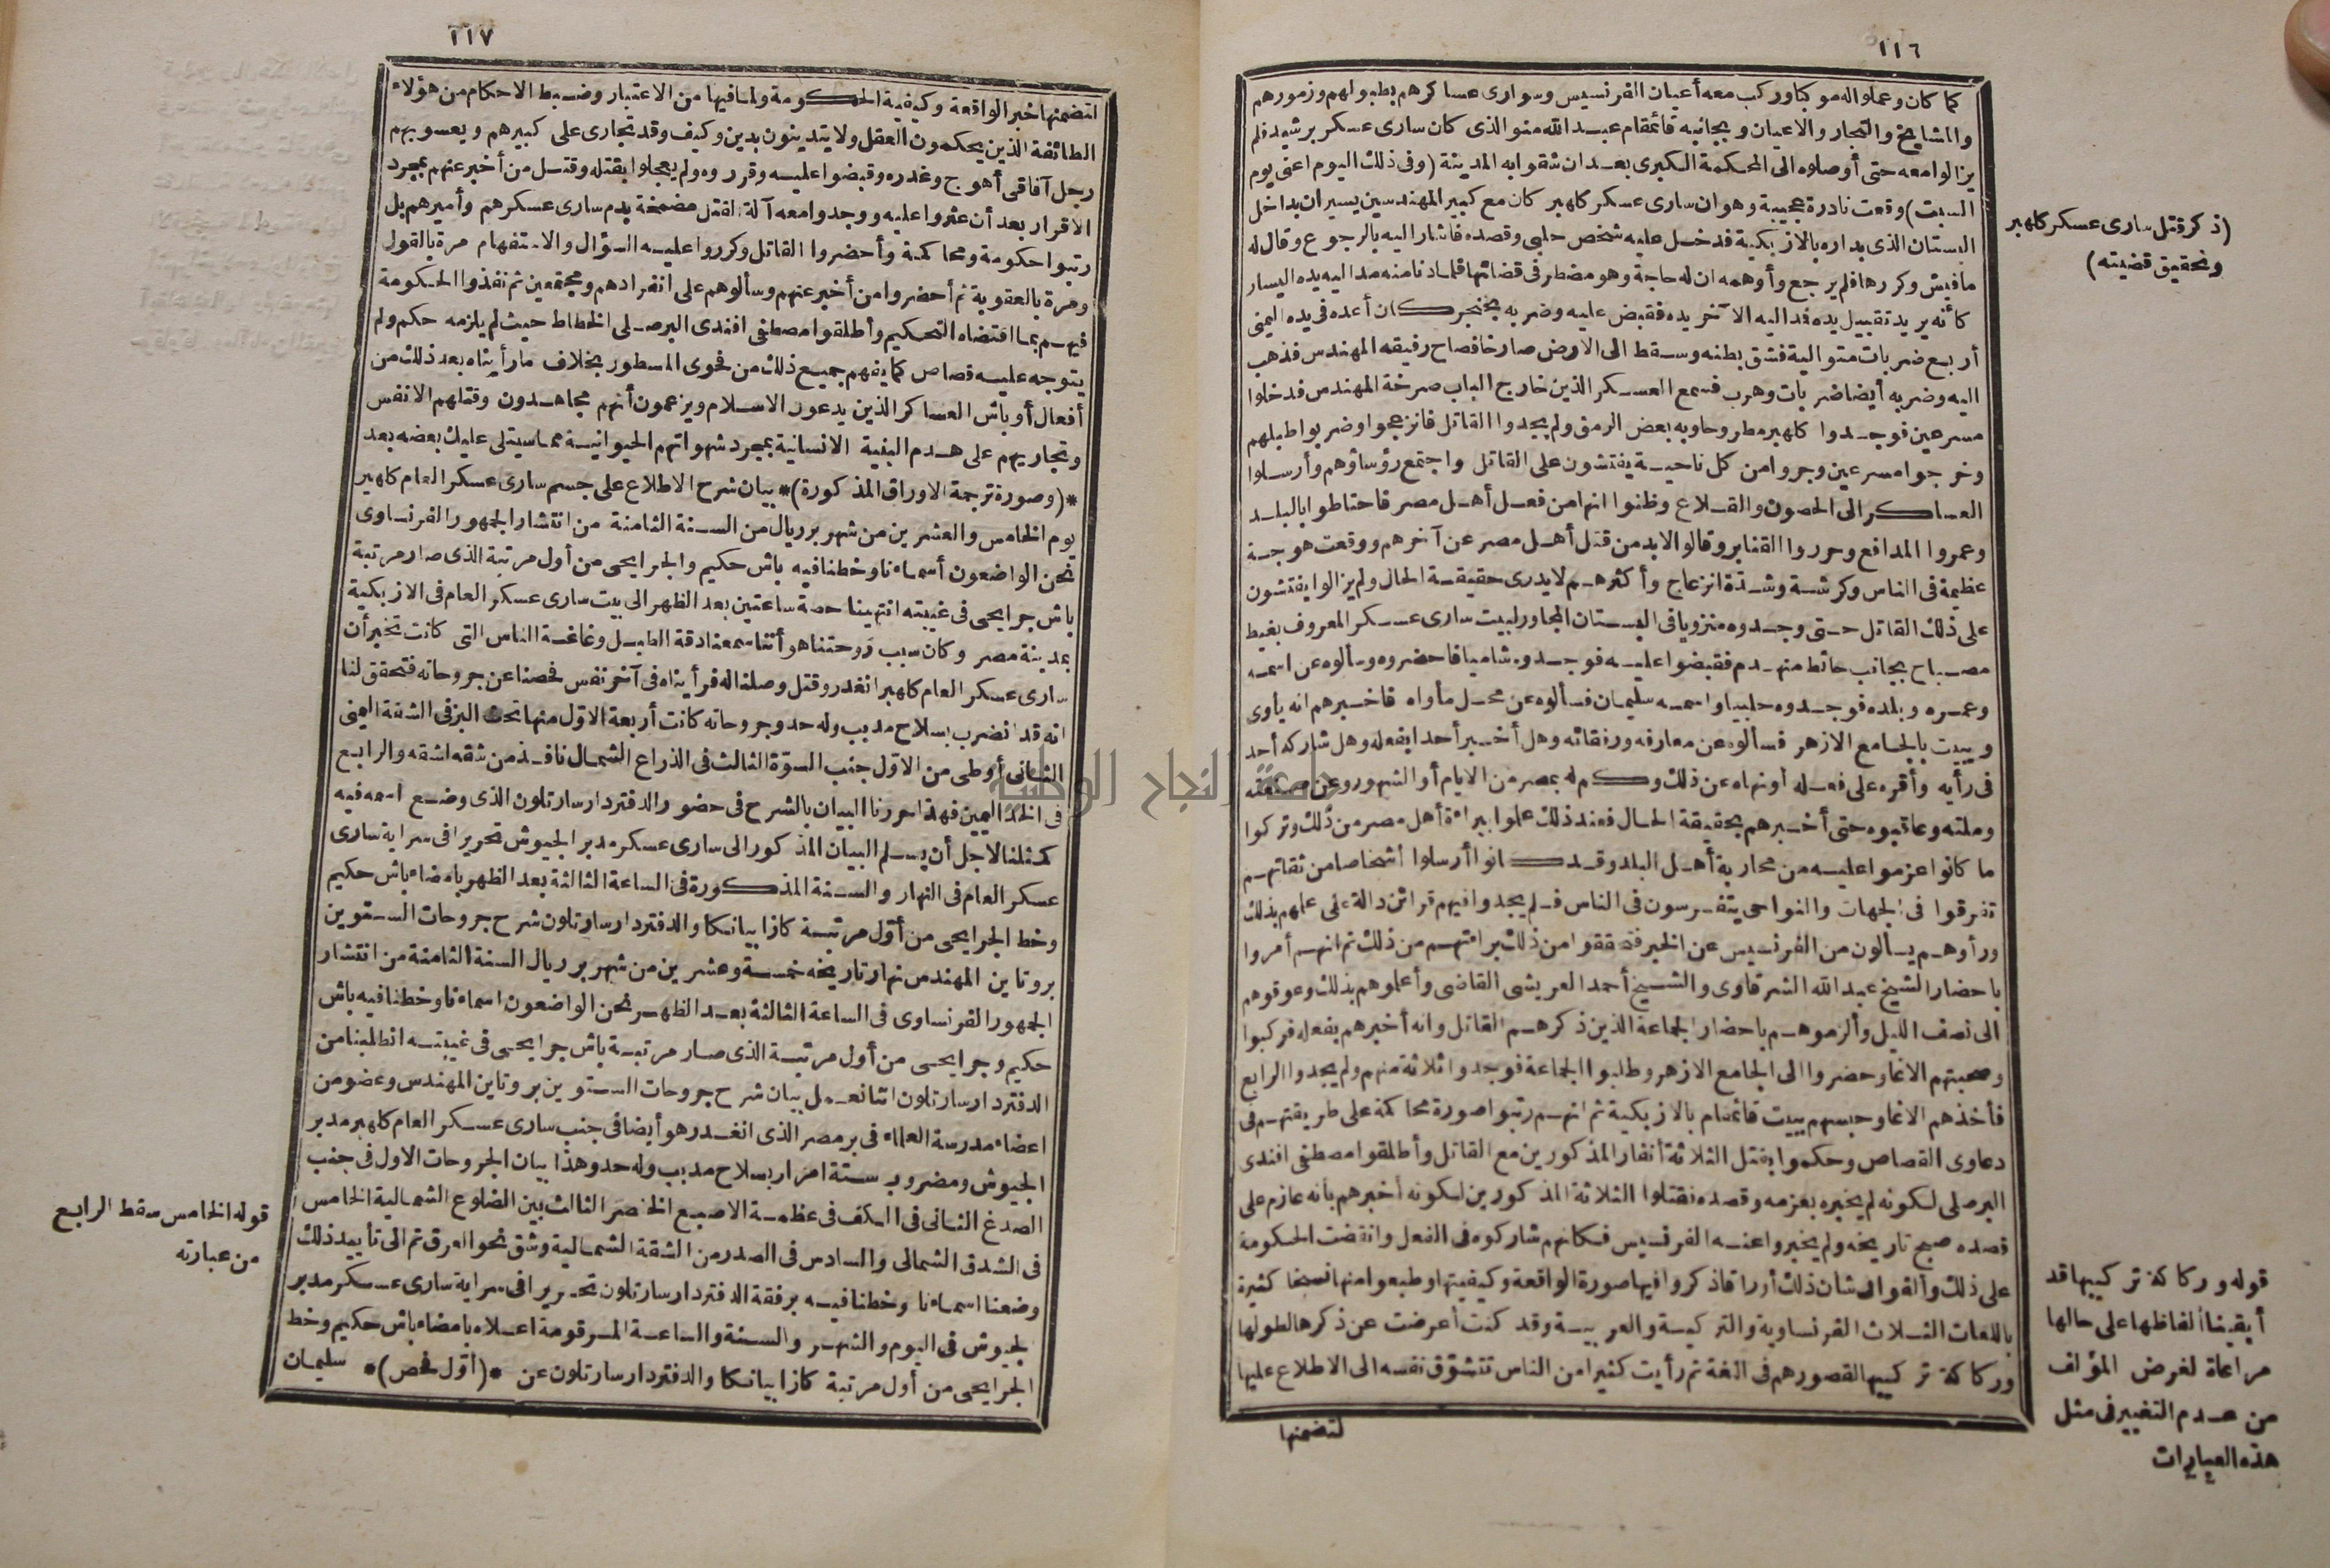 ١١٦
كما كان وعملوا له موكبا وركب معه أعيان الفرنسيس وسوارى عساكرهم بطبولهم وزمورهم
والمشايخ والتجار والاعيان وبجانبه قائمقام عبد الله منو الذى كان سارى عسكر برشيد فلم
يزالوا معه حتى أوصلوه الى المحكمة الكبرى بعد ان شقوا به المدينة (وفى ذلك اليوم اعنى يوم
السبت) وقعت نادرة عجيبة وهو ان سارى عسكر كلهبر كان مع كبير المهندسين يسيران بداخل
البستان الذى بداره بالازبكية فدخل عليه شخص حلبى وقصده فاشار اليه بالرجوع وقال له
مافيش وكررها فلم يرجع وأوهمه ان له حاجة وهو مضطر فى قضائها فلما دنا منه مد اليه يده اليسار
كأنه يريد تقبيل يده فمد اليه الآخر يده فقبض عليه وضربه بخنجر كان أعده فى يده اليمنى
أربع ضربات متوالية فشق بطنه وسقط الى الارض صارخا فصاح رفيقه المهندس فذهب
اليه وضربه أيضا ضربات وهرب فسمع العسكر الذين خارج الباب صرخة المهندس فدخلوا
مسرعين فوجدوا كلهبر مطروحا وبه بعض الرمق ولم يجدوا القاتل فانزعجوا وضربوا طبلهم
وخرجوا مسرعين وجروا من كل ناحية يفتشون على القاتل واجتمع رؤساؤهم وأرسلوا
العساكر الى الحصون والقلاع وظنوا انها من فعل أهل مصر فاحتاطوا بالبلد
وعمروا المدافع وحرروا القنابر وقالوا لابد من قتل أهل مصر عن آخرهم ووقعت هوجة
عظيمة فى الناس وكرشة وشدة انزعاج وأكثرهم لا يدرى حقيقة الحال ولم يزالوا يفتشون
على ذلك القاتل حتى وجدوه منزويا فى البستان المجاور لبيت سارى عسكر المعروف بغيط
مصباح بجانب حائط منهدم فقبضوا عليه فوجدوه شاميا فاحضروه وسألوه عن اسمه
وعمره وبلده فوجدوه حلبيا واسمه سليمان فسألوه عن محل مأواه فاخبرهم انه يأوى
ويبيت بالجامع الازهر فسألوه عن معارفه ورفقائه وهل أخبر أحدا بفعله وهل شاركه أحد
فى رأيه وأقره على فعله أو نهاه عن ذلك وكم له بمصر من الايام أو الشهور وعن صنعته
وملته وعاقبوه حتى أخبرهم بحقيقة الحال فعند ذلك علموا ببراءة أهل مصر من ذلك وتركوا
ما كانوا عزموا عليه من محاربة أهل البلد وقد كانوا أرسلوا أشخاصا من ثقاتهم
تفرقوا فى الجهات والنواحى يتفرسون فى الناس فلم يجدوا فيهم قرائن دالة على علمهم بذلك
ورأوهم يسألون من الفرنسيس عن الخبر فتحققوا من ذلك براءتهم من ذلك ثم انهم أمروا
باحضار الشيخ عبد الله الشرقاوى والشيخ أحمد العريشى القاضى وأعلموهم بذلك وعوقوهم
الى نصف الليل وألزموهم باحضار الجماعة الذين ذكرهم القاتل وانه أخبرهم بفعله فركبوا
وصحبتهم الاغا وحضروا الى الجامع الازهر وطلبوا الجماعة فوجدوا ثلاثة منهم ولم يجدوا الرابع
فأخذهم الاغا وحبسهم ببيت قائمقام بالازبكية ثم انهم رتبوا صورة محاكمة على طريقتهم فى
دعاوى القصاص وحكموا بقتل الثلاثة أنفار المذكورين مع القاتل وأطلقوا مصطفى افندى
البرصلى لكونه لم يخبره بعزمه وقصده فقتلوا الثلاثة المذكورين لكونه أخبرهم بأنه عازم على
قصده صبح تاريخه ولم يخبروا عنه الفرنسيس فكانهم شاركوه فى الفعل وانقضت الحكومة
على ذلك وألفوا فى شان ذلك أوراقا ذكروا فيها صورة الواقعة وكيفيتها وطبعوا منها نسخا كثيرة
باللغات الثلاث الفرنساوية والتركية والعربية وقد كنت أعرضت عن ذكرها لطولها
وركاكة تركيبها لقصورهم فى اللغة ثم رأيت كثيرا من الناس تتشوق نفسه الى الاطلاع عليها
لتضمنها
(ذكر قتل سارى عسكر كلهبر
وتحقيق قضيته)
قوله وركاكة تركيبها قد
أبقينا ألفاظها على حالها
مراعاة لغرض المؤلف
من عدم التغيير فى مثل
هذه العبارات
١١٧
لتضمنها خبر الواقعة وكيفية الحكومة ولما فيها من الاعتبار وضبط الاحكام من هؤلاء
الطائفة الذين يحكمون العقل ولا يتدينون بدين وكيف وقد تجارى على كبيرهم ويعسوبهم
رجل آفاقى أهوج وغدره وقبضوا عليه وقرروه ولم يعجلوا بقتله وقتل من أخبر عنهم بمجرد
الاقرار بعد أن عثروا عليه ووجدوا معه آلة القتل مضمخة بدم سارى عسكرهم وأميرهم بل
رتبوا حكومة ومحاكمة وأحضروا القاتل وكرروا عليه السؤال والاستفهام مرة بالقول
ومرة بالعقوبة ثم أحضروا من أخبر عنهم وسألوهم على انفرادهم ومجتمعين ثم نفذوا الحكومة
فيهم بما اقتضاه التحكيم وأطلقوا مصطفى افندى البرصلى الخطاط حيث لم يلزمه حكم ولم
يتوجه عليه قصاص كما يفهم جميع ذلك من فحوى المسطور بخلاف ما رأيناه بعد ذلك من
أفعال أوباش العساكر الذين يدعون الاسلام ويزعمون أنهم مجاهدون وقتلهم الانفس
وتجاريهم على هدم البنية الانسانية بمجرد شهواتهم الحيوانية مما سيتلى عليك بعضه بعد
*(وصورة ترجمة الاوراق المذكورة)* بيان شرح الاطلاع على جسم سارى عسكر العام كلهبر
يوم الخامس والعشرين من شهر برريال من السنة الثامنة من انتشار الجمهور الفرنساوى
نحن الواضعون أسماءنا وخطنا فيه باش حكيم والجرايحى من أول مرتبة الذى صار مرتبة
باش جرايحى فى غيبته انتهينا حصة ساعتين بعد الظهر الى بيت سارى عسكر العام فى الازبكية
بمدينة مصر وكان سبب روحتنا هو أننا سمعنا دقة الطبل وغاغة الناس التى كانت تخبر أن
سارى عسكر العام كلهبر انغدر وقتل وصلنا له فرأيناه فى آخر نفس فحصنا عن جروحاته فتحقق لنا
انه قد انضرب بسلاح مدبب وله حد وجروحاته كانت أربعة الاول منها تحت البز فى الشقة اليمنى
الثانى أوطى من الاول جنب السوة الثالث فى الذراع الشمال نافذ من شقه لشقه والرابع
فى الخد اليمين فهذا حررنا البيان بالشرح فى حضور الدفتردار سارتلون الذى وضع اسمه فيه
كمثلنا لاجل أن يسلم البيان المذكور الى سارى عسكر مدبر الجيوش تحريرا فى سراية سارى
عسكر العام فى النهار والسنة المذكورة فى الساعة الثالثة بعد الظهر بامضاء باش حكيم
وخط الجرايحى من أول مرتبة كازابيانكا والدفتردار سارتلون شرح جروحات الستوين
بروتاين المهندس نهار تاريخه خمسة وعشرين من شهر برريال السنة الثامنة من انتشار
الجمهور الفرنساوى فى الساعة الثالثة بعد الظهر نحن الواضعون اسماءنا وخطنا فيه باش
حكيم وجرايحى من أول مرتبة الذى صار مرتبة باش جرايحى فى غيبته انطلبنا من
الدفتردار سارتلون اننا نعمل بيان شرح جروحات الستوين بروتاين المهندس وعضو من
اعضاء مدرسة العلماء فى بر مصر الذى انغدر هو أيضا فى جنب سارى عسكر العام كلهبر مدبر
الجيوش ومضروب ستة امرار بسلاح مدبب وله حد وهذا بيان الجروحات الاول فى جنب
الصدغ الثانى فى الكف فى عظمة الاصبع الخنصر الثالث بين الضلوع الشمالية الخامس
فى الشدق الشمالى والسادس فى الصدر من الشقة الشمالية وشق نحو العرق ثم الى تأييد ذلك
وضعنا اسماءنا وخطنا فيه برفقة الدفتردار سارتلون تحريرا فى سراية سارى عسكر مدبر
لجيوش فى اليوم والشهر والسنة والساعة المرقومة اعلاه بامضاء باش حكيم وخط
الجرايحى من أول مرتبة كازابيانكا والدفتردار سارتلون عن *(أول فحص)* سليمان
قوله الخامس سقط الرابع
من عبارته
جامعة النجاح الوطنية